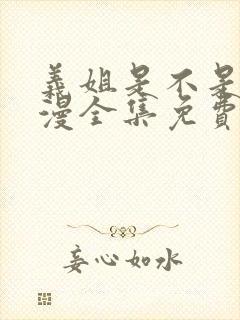 義姐是不是
漫全集免費
妄心如水